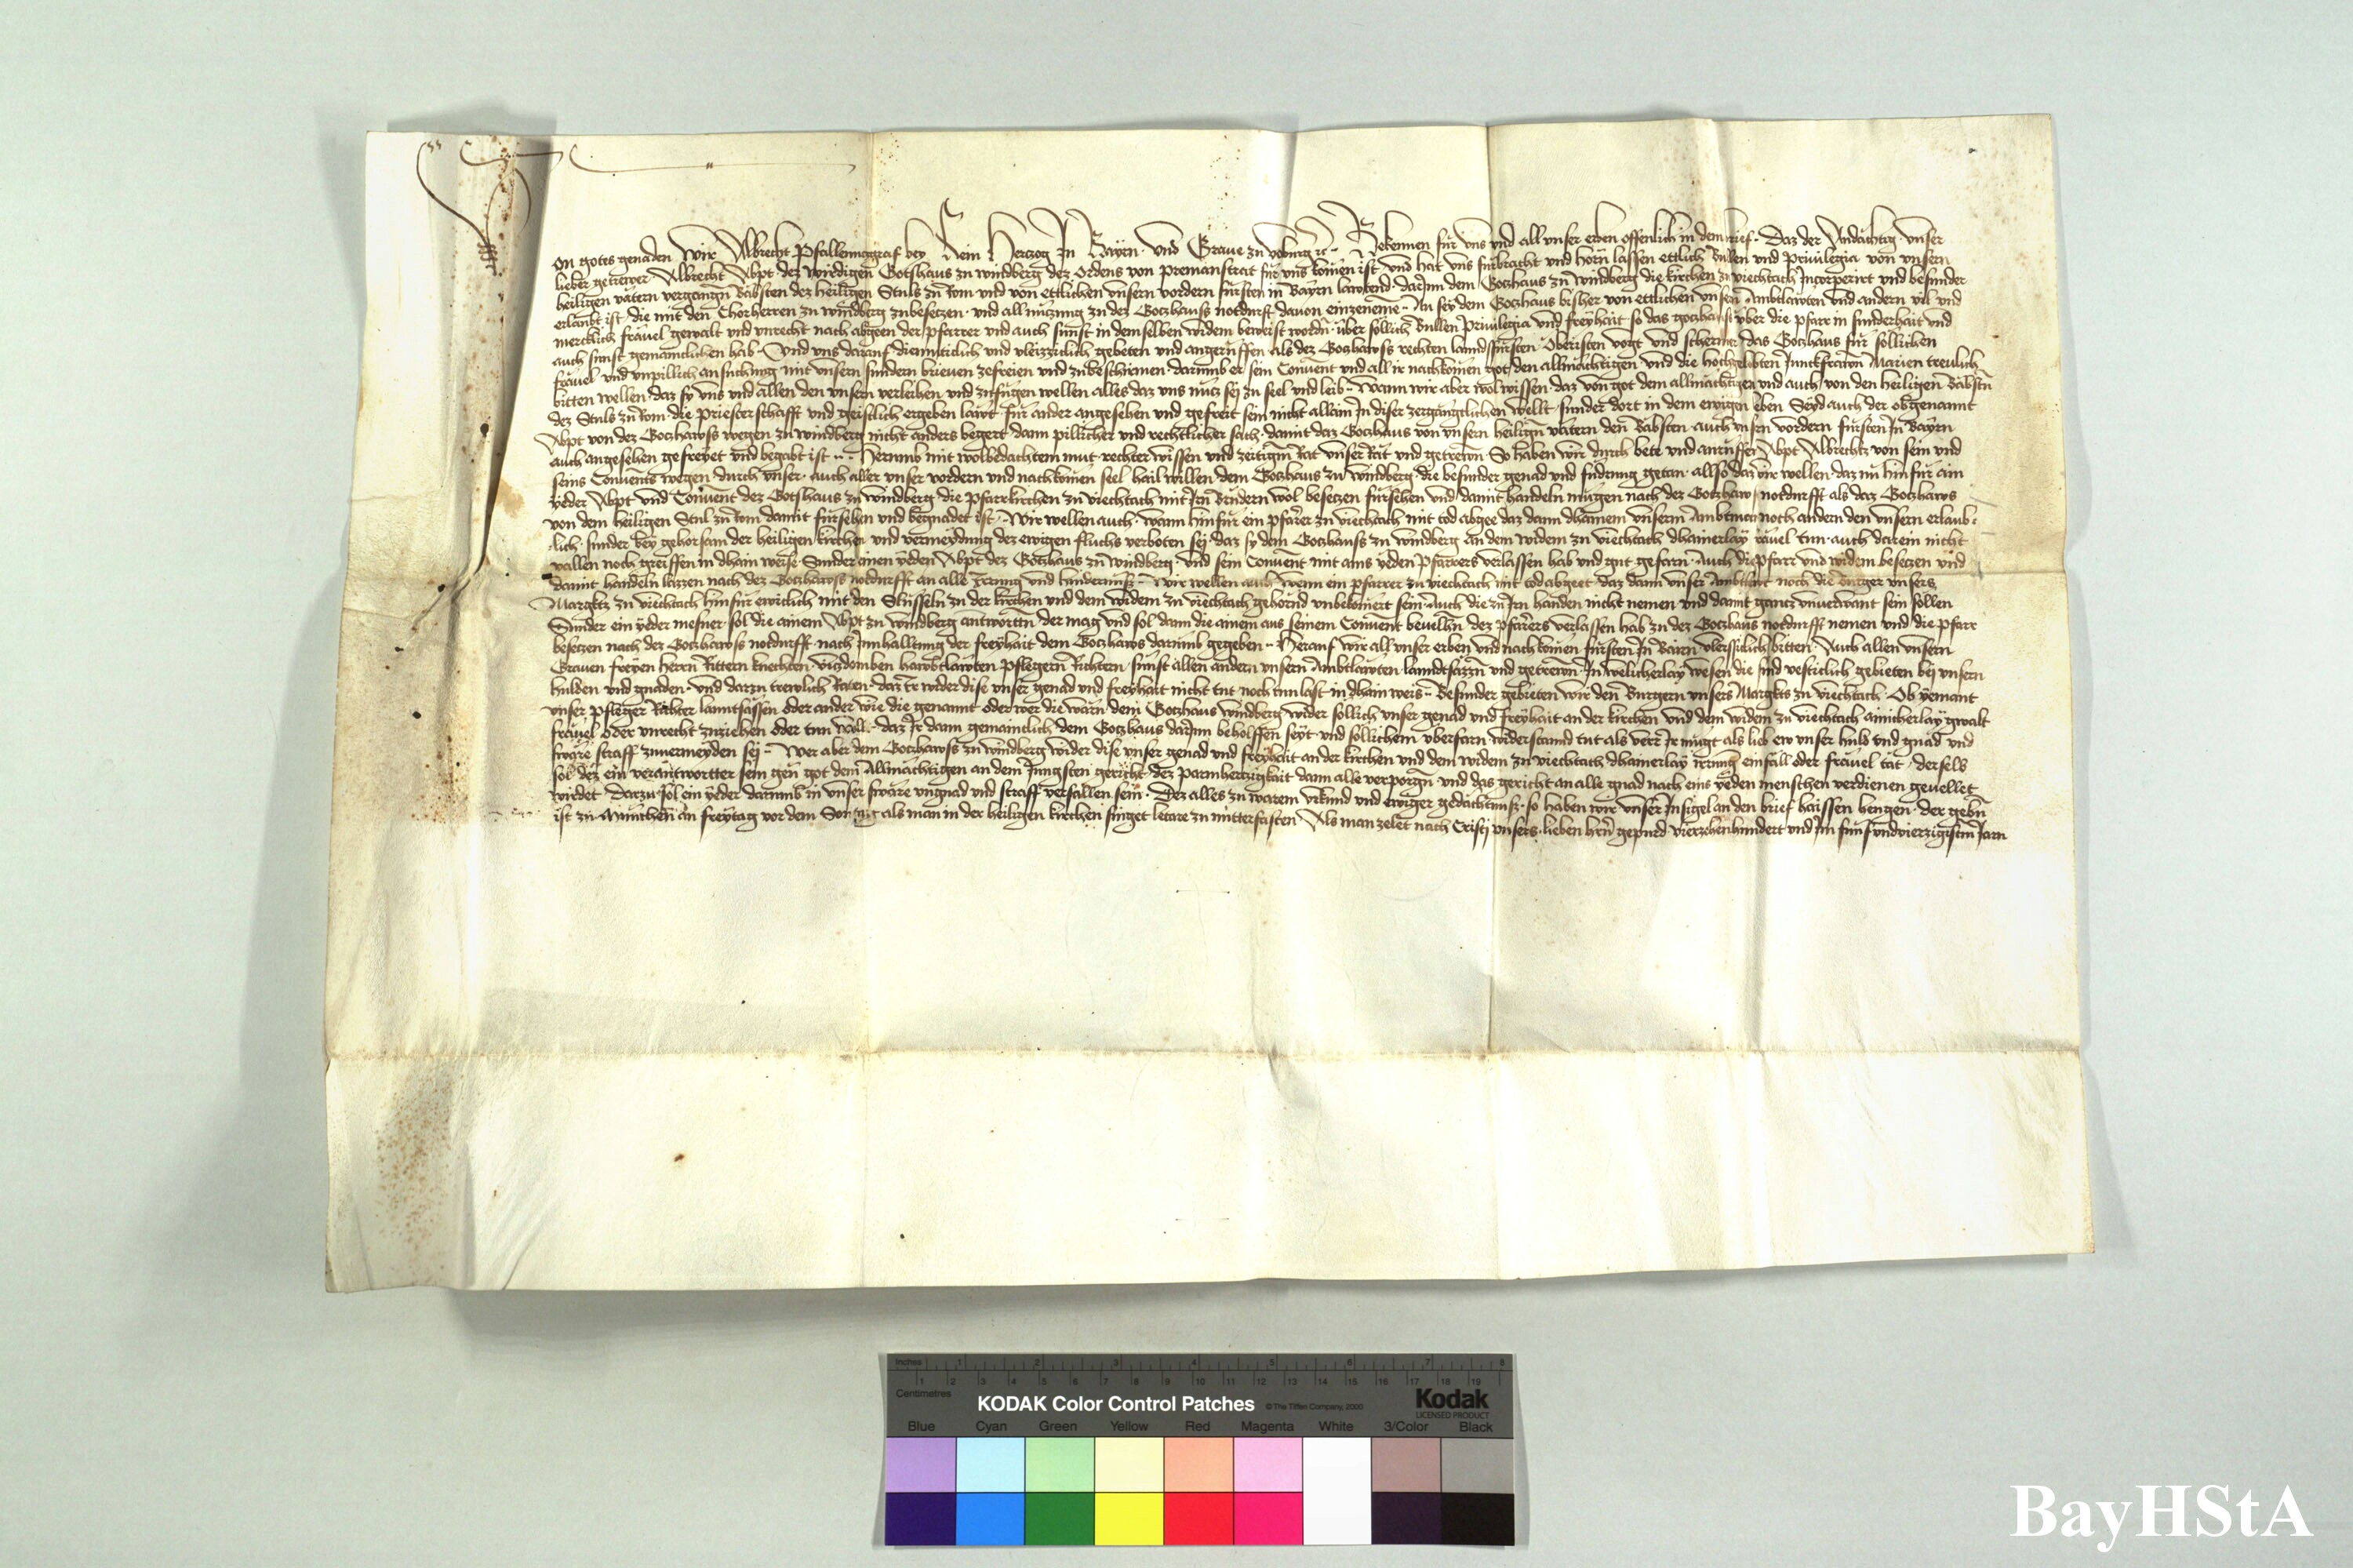 Von gotes genaden Wir Albrecht Pfallenntzgraf bey Rein Hertzog In Bayrn · und Grave zu voburg ꝛc · Bekennen für uns und all unser erben offenlich in dem brief · Daz der Andächtig unser
lieber getrewer Albrecht Abpt dez wirdigen Gotshaus zu windberg dez Ordens von Premonstrat für uns komen ist und hat uns fürbracht und hörn lassen ettlich Bullen und Privilegia von unsern
heiligen vätern vergangen Bäbsten dez heiligen Stuls zu Rom und von ettlichen unsern vordern fürsten in Bayrn lawtend · darinn dem Gotzhaus zu windberg die kirchen zu viechtach Incorperirt und besunder
erlaubt ist die mit den Chorherren zu windberg zubesetzen · und all nuczung zu dez Gotzhauss notdurft davon einzenemen · Nu sey dem Gotzhaus bisher von ettlichen unsern Ambtlawten und andern vil und
mercklich frävel gewalt und unrecht nach abgeen der pfarrer und auch sunst in demselben widem beweist wordn · über söllich Bullen Privilegia und freyhait so das gotzhaus über die pfarr in sunderhait und
auch sunst gemainclichen hab · Und uns darauf diemuticlich und vleizziclich gebeten und angeruffen als dez Gotzhawss rechten lanndsfürsten Obristen vogt und schermer das Gotzhaus für söllichen
frävel und unpillich ansuchung mit unsern sundern brieven zefreien und zubeschirmen darumb er sein Convent und all ir nachkomen got den allmächtigen und die hochgelobten Junckfrawn Marien treulich
bitten wellen · daz sy uns und allen den unsern verleihen und zufügen wellen alles daz uns nütz sej zu seel und leib · Wann wir aber wol wissen · daz von got dem allmächtigen und auch von den heiligen Bäbstn
dez Stuls zu Rom die priesterschafft und geistlich ergeben lawt für ander angesehen und gefreit sein nicht allain In diser zergänngklichen wellt sunder dort in dem ewigen leben Seyd auch der obgenannt
Abpt von dez Gotzhawss wegen zu windberg nicht anders begert dann pillicher und rechtlicher sach · damit daz Gotzhaus von unsern heilign vätern den Bäbsten auch unsern vordern fürsten In Bayrn
auch angesehen gefreyet und begabt ist · Hernumb mit wolbedachtem mut rechter wissen und zeitigm Rat unser Rät und getrewn · So haben wir durch bete und anruffen Abpt Albrechts von sein und
seins Convents wegen durch unser · auch aller unser vordern und nachkomen seel hail willen dem Gotzhaus zu windberg die besunder genad und fudrung getan · allso daz wir wellen · daz nu hinfür ain
yeder Abpt und Convent dez Gotshaus zu windberg die pfarrkirchen zu viechtach mit Irn Brüdern wol besetzen fürsehen und damit handeln mügen nach dez Gotzhaws notdurfft als daz Gotzhaws
von dem heiligen Stul zu Rom damit fürsehen und begnadet ist · Wir wellen auch · wann hinfür ein pfarrer zu viechtach mit tod abgee daz dann dhainem unserm Ambtman noch andern den unsern erlaub-
lich · sunder bey gehorsam der heiligen kirchen und vermeydung dez ewigen fluchs verboten sej · daz sy dem Gotzhauss zu windberg an dem widem zu viechtach dhainerlay frävel tun · auch darein nicht
vallen noch greiffen in dhain weise · Sunder ainen yeden Abpt dez Gotzhaus zu windberg · und sein Convent mit ains yeden pfarrers verlassen hab und gut gefarn · Auch die pfarr und widem besetzen und
damit handeln lazzen nach dez Gotzhawss notdurfft an alle irrung und hindernuss · Wir wellen auch wenn ein pfarrer zu viechtach mit tod abgeet daz dann unser Ambtlawt noch die Burger unsers
Margktz zu viechtach hinfür ewiclich mit den Slüsseln zu der kirchen und dem widem zu viechtach gehörnd unbekömert sein · Auch die zu Irn handen nicht nemen und damit gantz unverwant sein sollen
Sunder ein yeder mesner · sol die ainem Abpt zu windberg antwortn der mag und sol dann die ainem aus seinem Convent bevelhn dez pfarrers verlassen hab zu dez Gotzhaus notdurfft nemen und die pfarr
besetzen nach dez Gotzhawss notdurfft · nach Innhalltung der freyhait dem Gotzhaws darumb gegeben · Herauf wir all unser erben und nachkomen fürsten In Bairn vleissiclich bitten · Auch allen unsern
Graven freyen herrn Rittern knechten Vitzdomben hawbtlawten pflegern Richtern · sunst allen andern unsern Ambtlawten lanndtsazzen und getrewn · In welicherlay wesen die sind vesticlich gebieten bej unsern
hulden und gnaden · und darzu trewlich Raten · daz Ir wider dise unser genad und freyhait nicht tut noch tun last in dhain weis · Besunder gebieten wir den Burgern unsers Margkts zu viechtach · Ob yemant
unser pfleger Richter lanntsässen oder ander wie die genannt oder wer die wärn dem Gotzhaus windberg wider söllich unser genad und freyhait an der kirchen und dem widem zu viechtach ainicherlay gwalt
frävel oder unrecht zuziehen oder tun wöllt · daz Ir dann gemainclich dem Gotzhaus darinn beholffen seyt und söllichem überfarn widerstannd tut als verr Ir mügt als lieb ew unser huld und gnad und
swäre straff zuvermeyden sej · Wer aber dem Gotzhawss zu windberg wider dise unser genad und freyhait an der kirchen und dem widem zu viechtach dhainerlay irrung einfall oder frävel tät · derselb
sol dez ein verantwortter sein gen got dem Allmächtigen an dem Jungsten gericht · dez parmhertzigkait dann alle verporgn · und das gericht an alle gnad nach eins yeden menschen verdienen gevellet
wirdet Darzu sol ein yeder darumb in unser swäre ungnad und straff verfallen sein · Dez alles zu warem urkund und ewiger gedächtnuss · so haben wir unser Insigel an den brief haissen hengen · der gebn
ist zu München an freytag vor dem Sontag als man in der heiligen kirchen singet letare zu mitterfasten Als man zelet nach Cristj unsers lieben hrn gepurd vierzehenhundert und Im fünfundvierzigistm Jarn
Inches 1 2 3 4 5 6 7 8
Centimetres 1 2 3 4 5 6 7 8 9 10 11 12 13 14 15 16 17 18 19
KODAK Color Control Patches © The Tiffen Company, 2000 Kodak
LICENSED PRODUCT
Blue Cyan Green Yellow Red Magenta White 3/Color Black
BayHStA